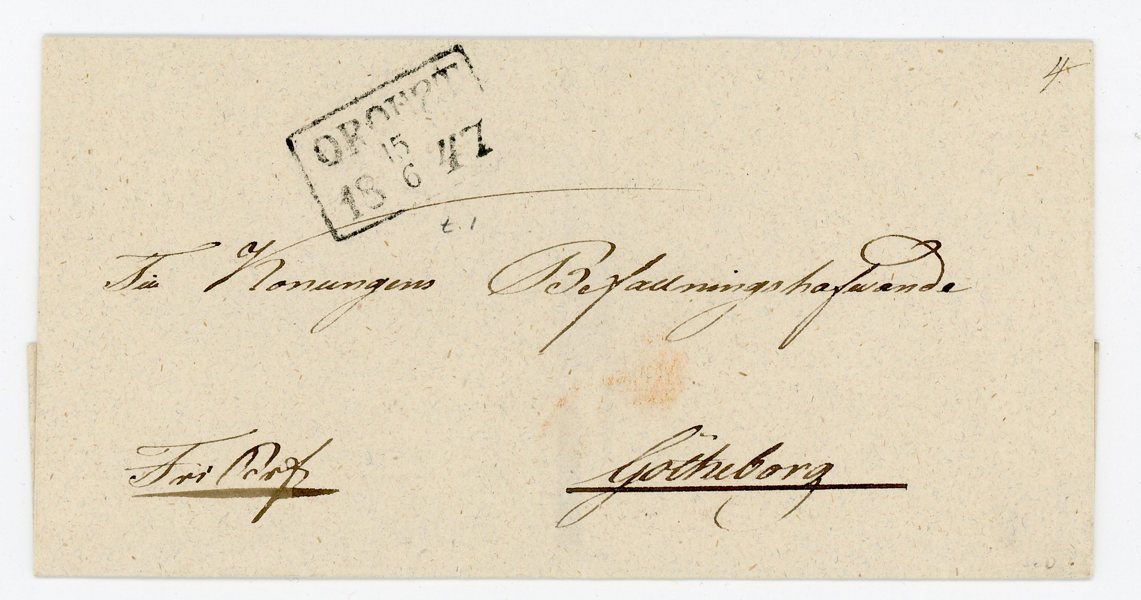 4
OROUST
15
18 6 47
t. 1
Till Konungens Befallningshafwande
Fri Bref
Götheborg